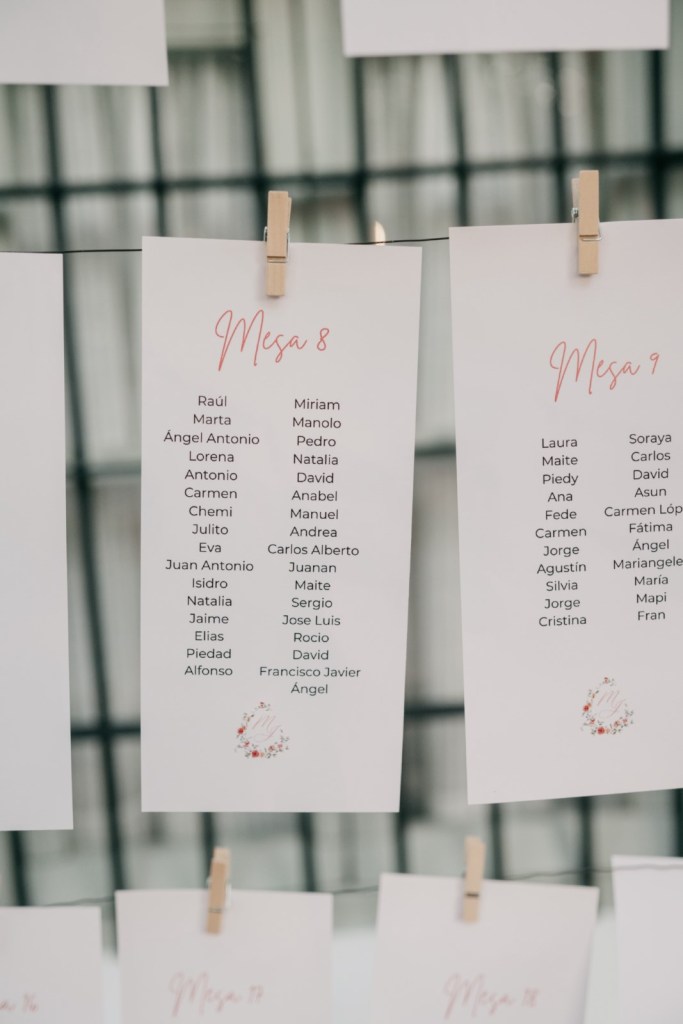 Mesa 8
Raúl
Marta
Ángel Antonio
Lorena
Antonio
Carmen
Chemi
Julito
Eva
Juan Antonio
Isidro
Natalia
Jaime
Elias
Piedad
Alfonso
Miriam
Manolo
Pedro
Natalia
David
Anabel
Manuel
Andrea
Carlos Alberto
Juanan
Maite
Sergio
Jose Luis
Rocio
David
Francisco Javier
Ángel
Mesa 9
Laura
Maite
Piedy
Ana
Fede
Carmen
Jorge
Agustín
Silvia
Jorge
Cristina
Soraya
Carlos
David
Asun
Carmen Lóp
Fátima
Ángel
Mariangele
María
Mapi
Fran
sa 16
Mesa 17
Mesa 18